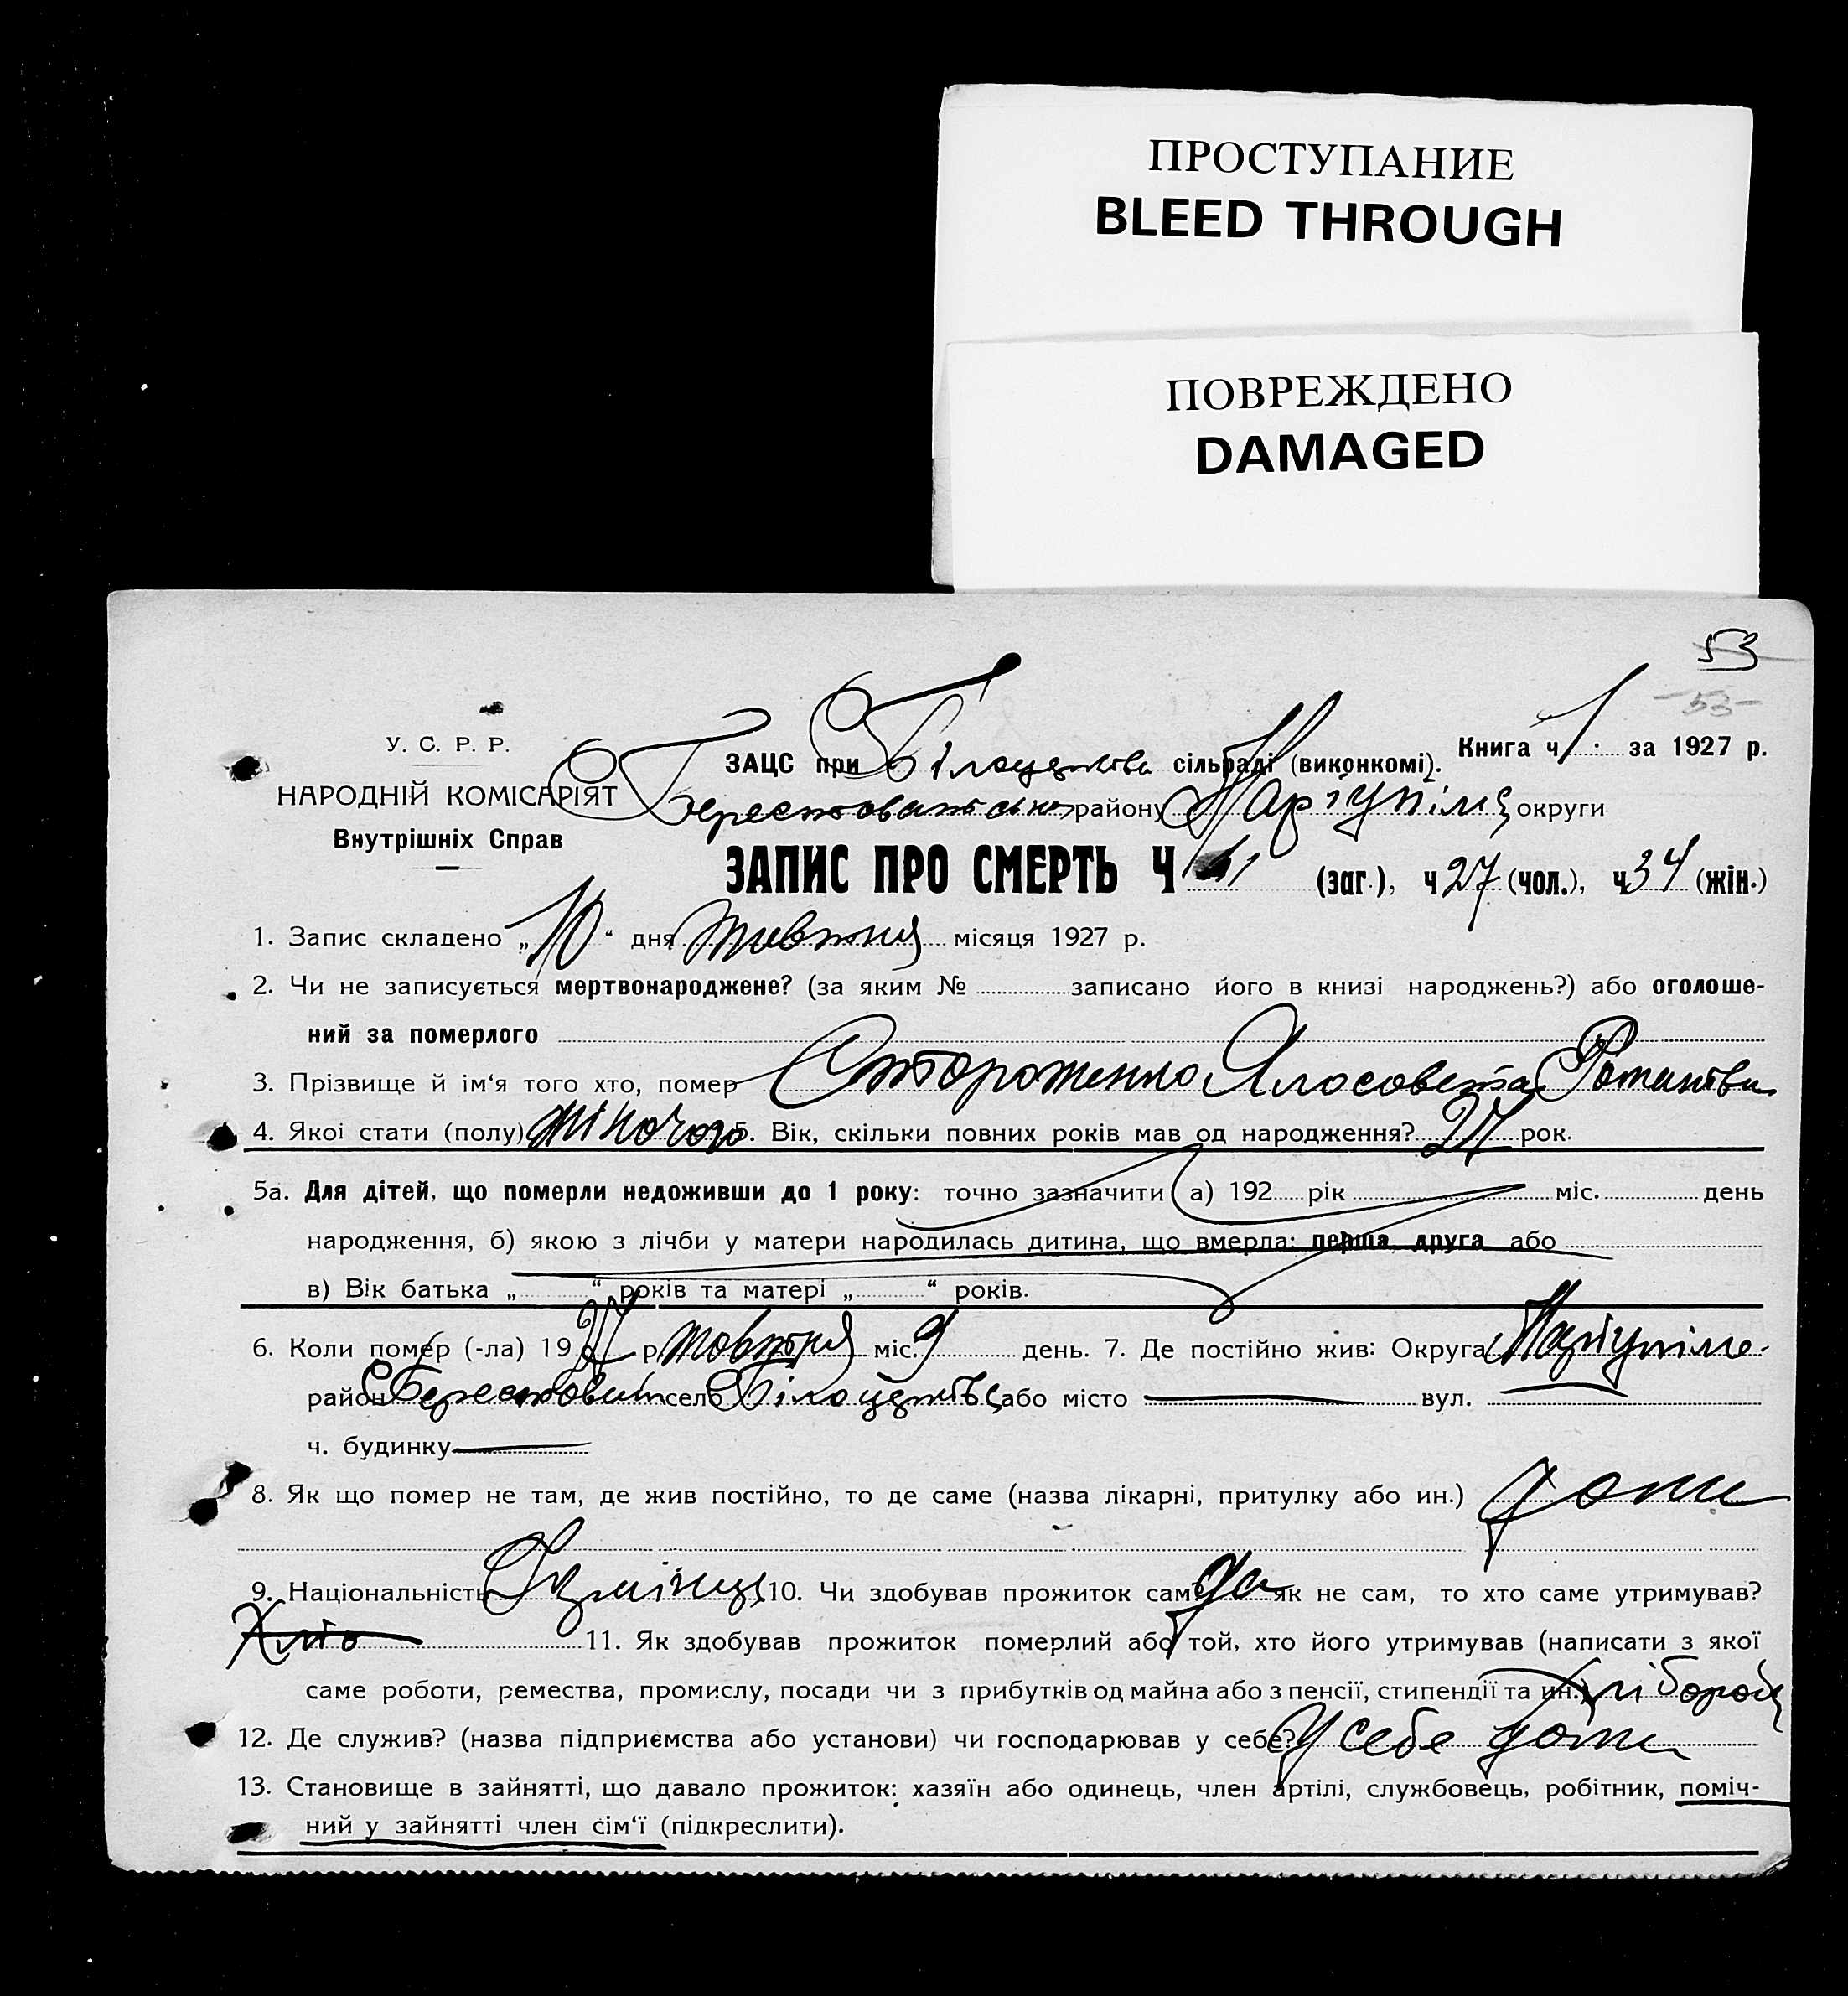 ПРОСТУПАНИЕ
BLEED THROUGH
ПОВРЕЖДЕНО
DAMAGED
53
-53-
У. С. Р. Р.
НАРОДНІЙ КОМІСАРІЯТ
Внутрішніх Справ
ЗАЦС при сільраді (виконкомі). Книга ч. 1. за 1927 р.
району округи
ЗАПИС ПРО СМЕРТЬ Ч 61 (заг.), ч 27 (чол.), ч 34 (жін.)
1. Запис складено „10“ дня жовтня місяця 1927 р.
2. Чи не записується мертвонароджене? (за яким № записано його в книзі народжень?) або оголоше-
ний за померлого
3. Прізвище й ім‘я того хто, помер Стороженко Ялосовета Романівна
4. Якої стати (полу) жіночого 5. Вік, скільки повних років мав од народження? 27 рок.
5а. Для дітей, що померли недоживши до 1 року: точно зазначити а) 192 рік міс. день
народження, б) якою з лічби у матери народилась дитина, що вмерла: перша, друга або
в) Вік батька „ “ років та матері „ “ років.
6. Коли помер (-ла) 1927 р. жовтня міс. 9 день. 7. Де постійно жив: Округа Маріупіль.
район село або місто вул.
ч. будинку
8. Як що помер не там, де жив постійно, то де саме (назва лікарні, притулку або ин.) дома
9. Національність 10. Чи здобував прожиток сам? да як не сам, то хто саме утримував?
11. Як здобував прожиток померлий або той, хто його утримував (написати з якої
саме роботи, ремества, промислу, посади чи з прибутків од майна або з пенсії, стипендії та ин.) хлібороб
12. Де служив? (назва підприємства або установи) чи господарював у себе? У себе дома
13. Становище в зайнятті, що давало прожиток: хазяїн або одинець, член артілі, службовець, робітник, поміч-
ний у зайнятті член сім‘ї (підкреслити).